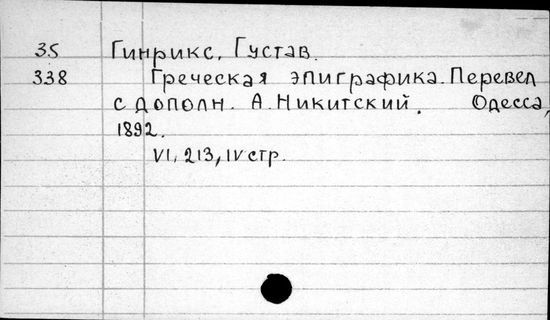 35 Гинрикс, Густав.
338 Греческая эпиграфика. Перевел
с дополн. А. Никитский. Одесса,
1892.
VI, 213, IV стр.